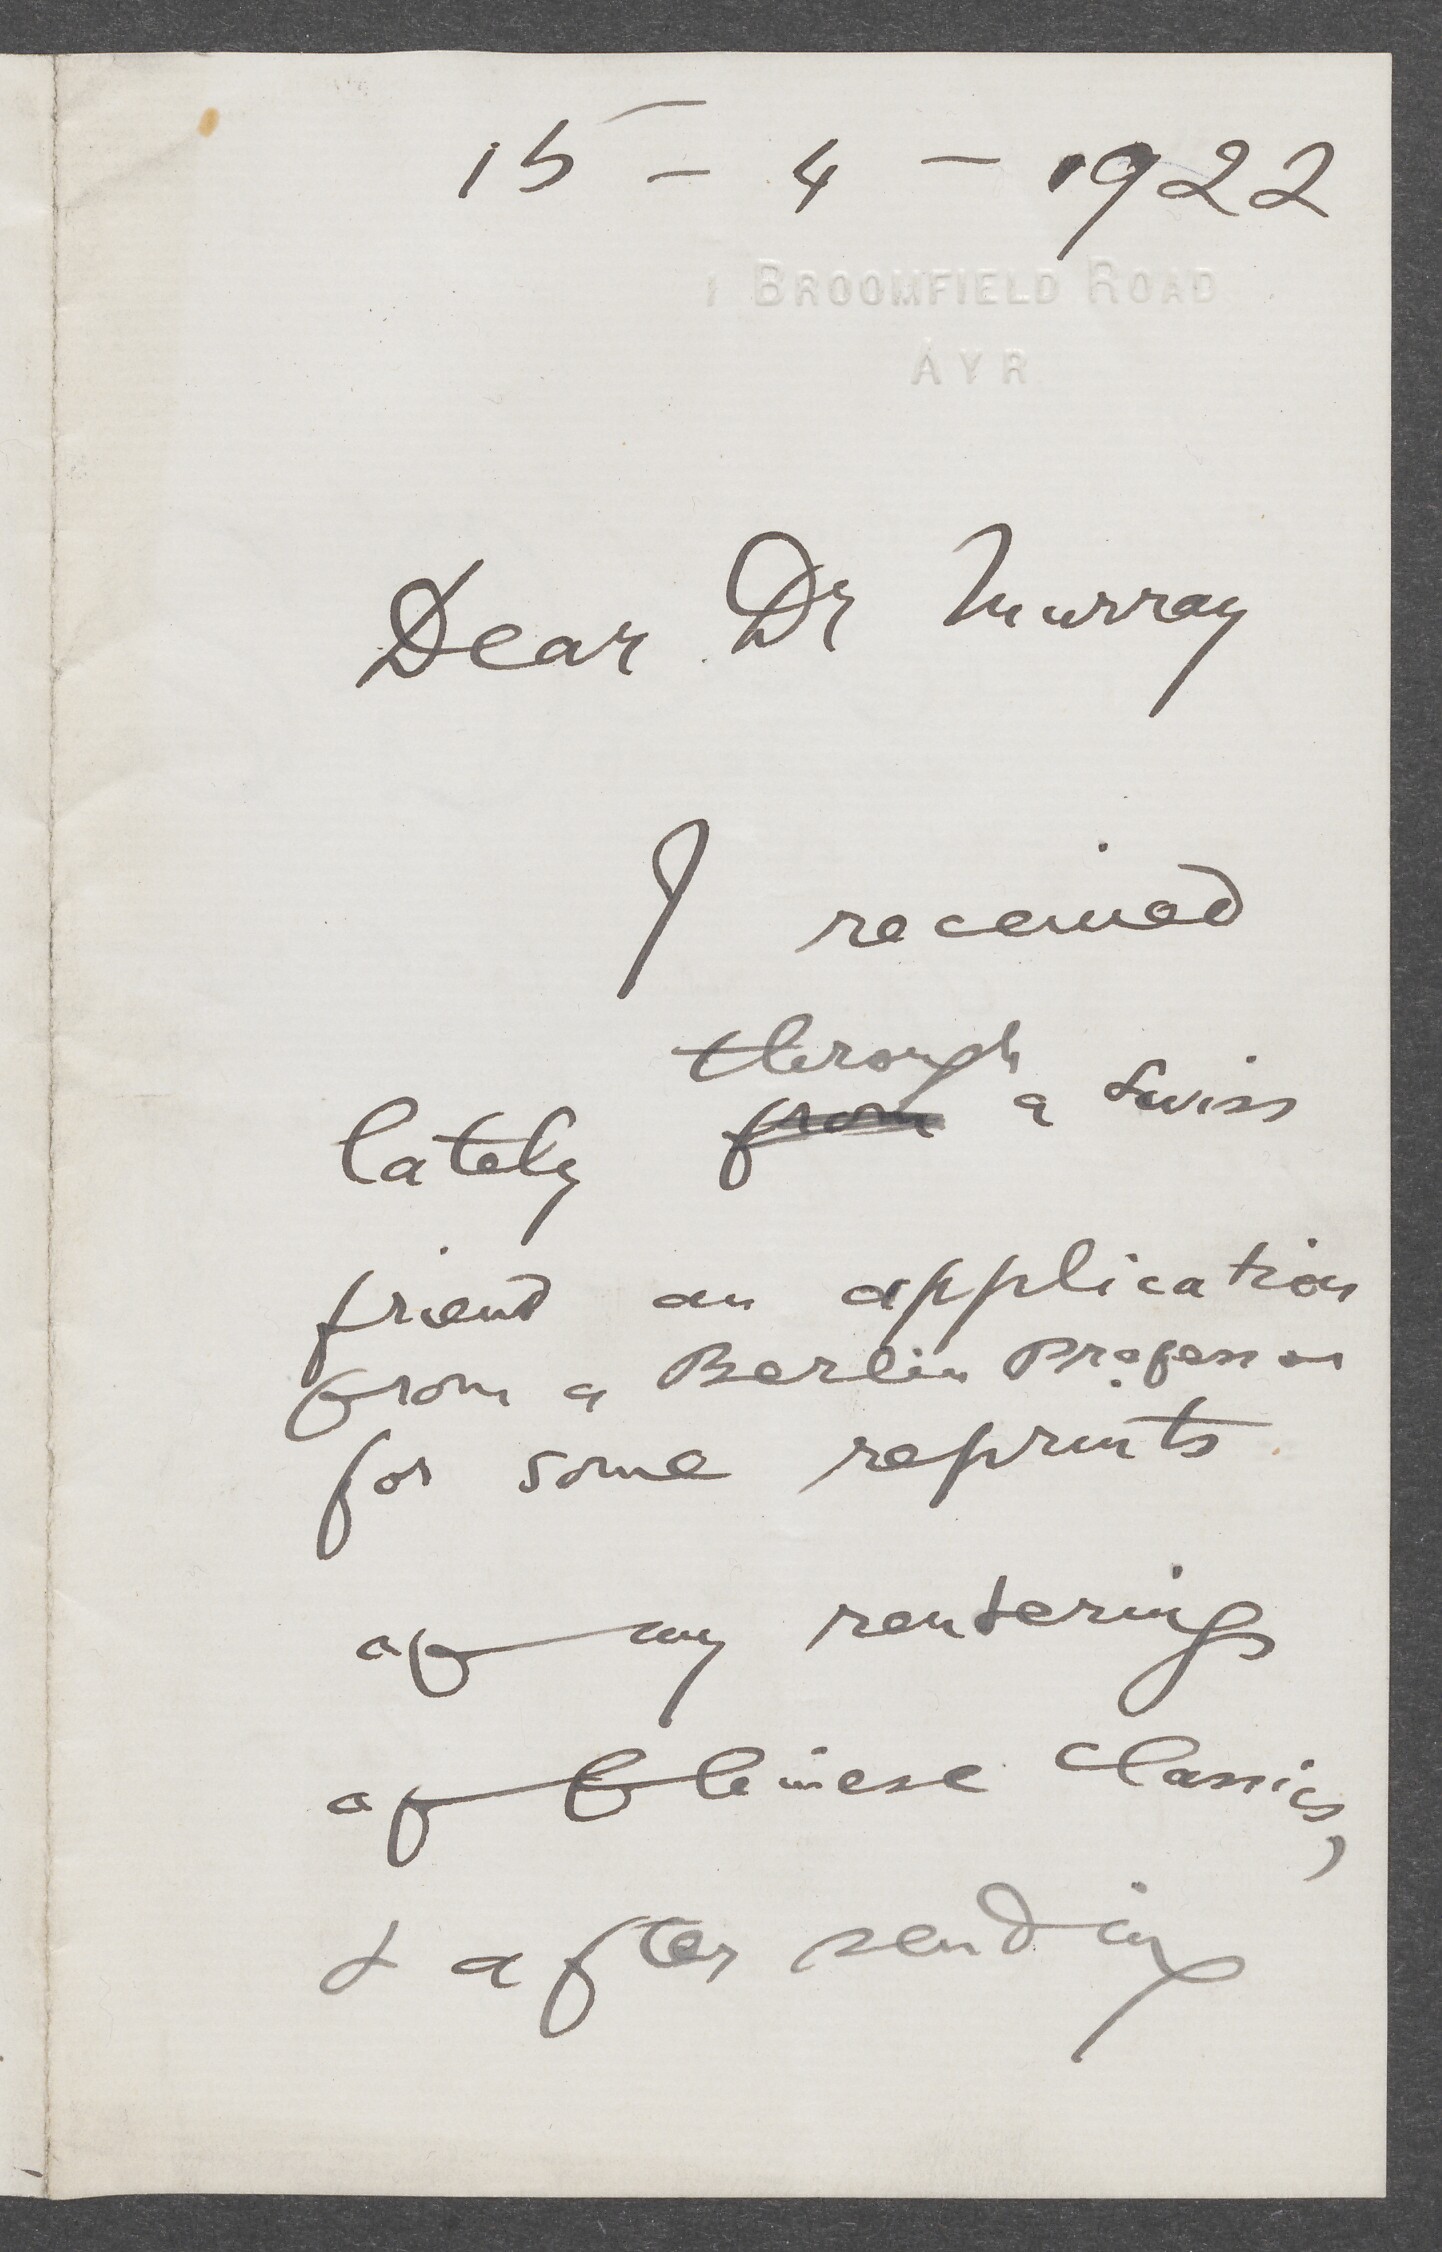 15 - 4 - 1922
1 BROOMFIELD ROAD
AYR
Dear Dr Murray
I received
through
lately from a Swiss
friend an application
from a Berlin Professor
for some reprints
of my renderings
of Chinese Classics,
& after sending